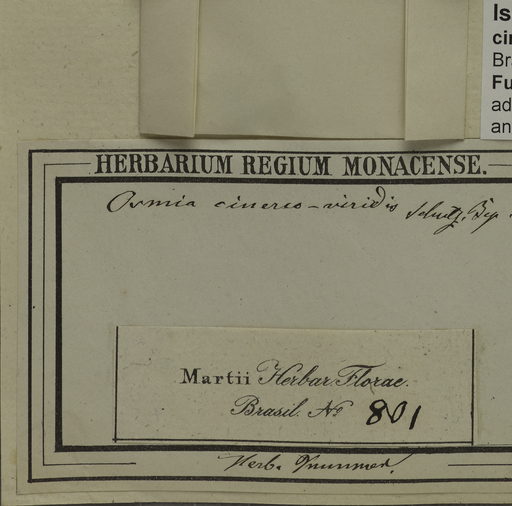 Is
cin
Br
Fu
ad
an
HERBARIUM REGIUM MONACENSE.
Osmia cinereo-viridis Schultz. Bip.
Martii Herbar. Florae.
Brasil. No 801
Herb. Monac.